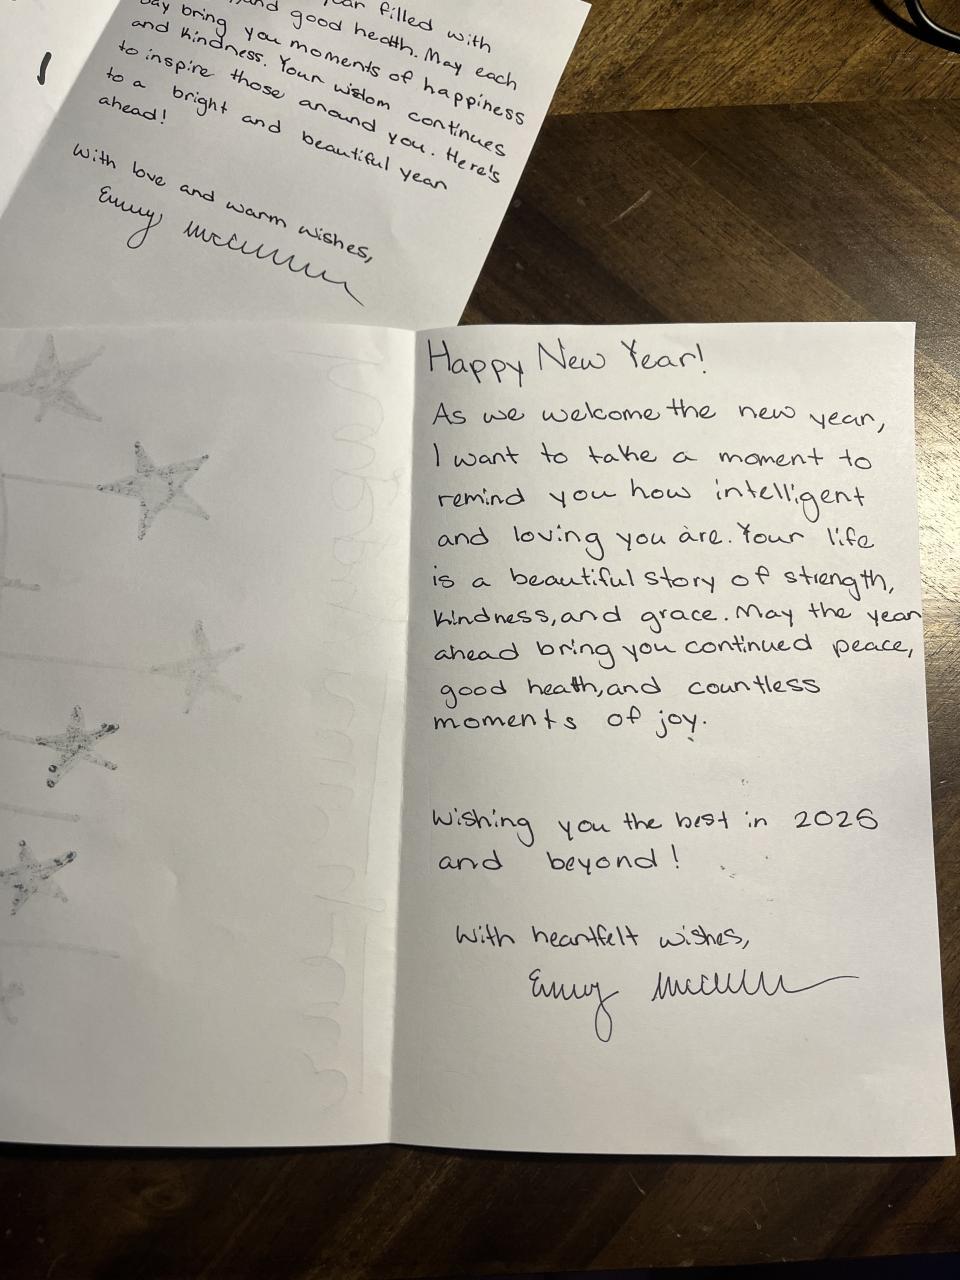 filled with
and good health. May each
day bring you moments of happiness
and kindness. Your wisdom continues
to inspire those around you. Here's
to a bright and beautiful year
ahead!
With love and warm wishes,
Happy New Year!
As we welcome the new year,
I want to take a moment to
remind you how intelligent
and loving you are. Your life
is a beautiful story of strength,
kindness, and grace. May the year
ahead bring you continued peace,
good heath, and countless
moments of joy.
Wishing you the best in 2026
and beyond!
With heartfelt wishes,